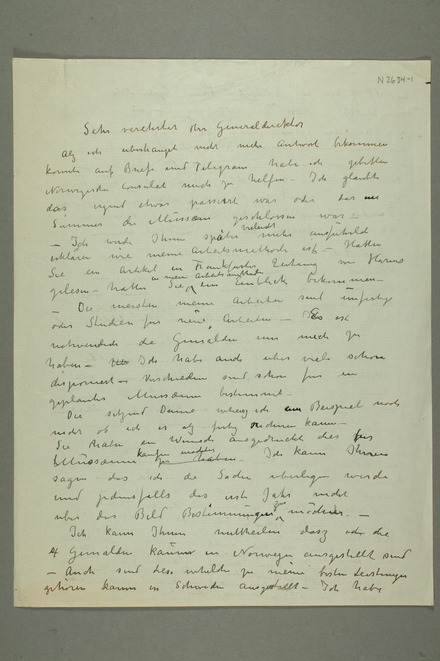 N 2634-1
Sehr verehrter Herr Generaldirektor
Als ich überhaupt nicht mehr Antwort bekommen
konnte auf Briefe und Telegram habe ich gebeten
Norwegischen Consulat mich zu helfen – Ich glaubte
das irgend etwas passiert war oder das
Sommer die Müssäum geschlossen war –
– Ich werde Ihnen später vieleicht mehr ausführlich
erklären wie meine Arbeitsmethode ist – Hatten
Sie ein Artikel in Frankfurter Zeitung von
gelesen – hatten Sie in mein Arbeitsmethode ein Einblick bekommen –
– Die meisten meine Arbeiten sind unfertige
oder Studien für neue Arbeiten – Es ist
notwendich die Gemälden um mich zu
haben – Ich habe auch über viele schon
disponiert – Verschiedene sind schon für ein
geplantes Müssäum bestimmt –
Die sitzend Dame weisz ich Beispiel noch
nicht ob ich es als fertig rechnen kann –
Sie haben ein Wunsch ausgedruckt dies für
Müssäum kaufen – Ich kann Ihnen
sagen das ich die Sache überlegen werde
und jedenfalls das erste Jahr nicht
über das Bild Bestimmungen –
Ich kann Ihnen mittheilen dasz die
4 Gemälden kaum in Norwegen ausgestellt sind
– Auch sind dies welche zu meine besten Leistungen
gehören kaum in Schweden ausgestellt – Ich habe